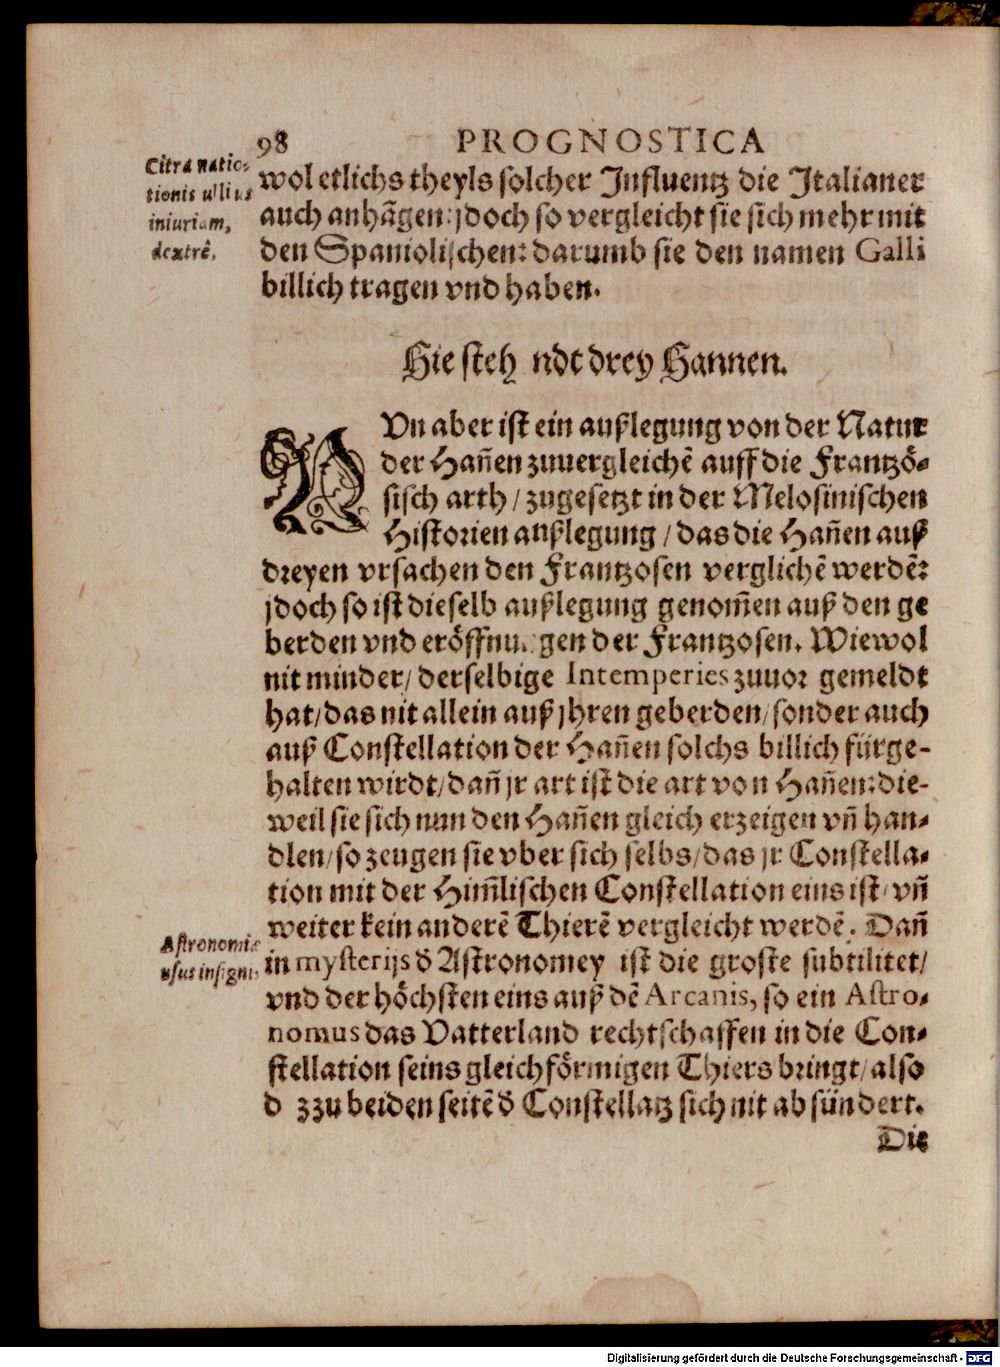 98 PROGNOSTICA
Citra natio-
tionis ullius
iniuriam,
dextrê.
wol etlichs theyls solcher Influentz die Italianer
auch anhãgen: jdoch so vergleicht sie sich mehr mit
den Spaniolischen: darumb sie den namen Galli
billich tragen vnd haben.
Hie steh ndt drey Hannen.
NVn aber ist ein außlegung von der Natur
der Hañen zuuergleichẽ auff die Frantzö-
sisch arth / zugesetzt in der Melosinischen
Historien außlegung / das die Hañen auß
dreyen vrsachen den Frantzosen verglichẽ werdẽ:
jdoch so ist dieselb außlegung genom̃en auß den ge
berden vnd eröffnu. gen der Frantzosen. Wiewol
nit minder / derselbige Intemperies zuuor gemeldt
hat / das nit allein auß jhren geberden / sonder auch
auß Constellation der Hañen solchs billich fürge-
halten wirdt / dañ jr art ist die art von Hañen: die-
weil sie sich nun den Hañen gleich erzeigen vñ han-
dlen / so zeugen sie vber sich selbs / das jr Constella-
tion mit der Him̃lischen Constellation eins ist / vñ
weiter kein anderẽ Thierẽ vergleicht werdẽ. Dañ
Astronomiæ
usus insignis
in mysterijs d̃ Astronomey ist die groste subtilitet /
vnd der höchsten eins auß dẽ Arcanis, so ein Astro-
nomus das Vatterland rechtschaffen in die Con-
stellation seins gleichförmigen Thiers bringt / also
d zzu beiden seitẽ d̃ Constellatz sich nit absündert.
Die
Digitalisierung gefördert durch die Deutsche Forschungsgemeinschaft - DFG